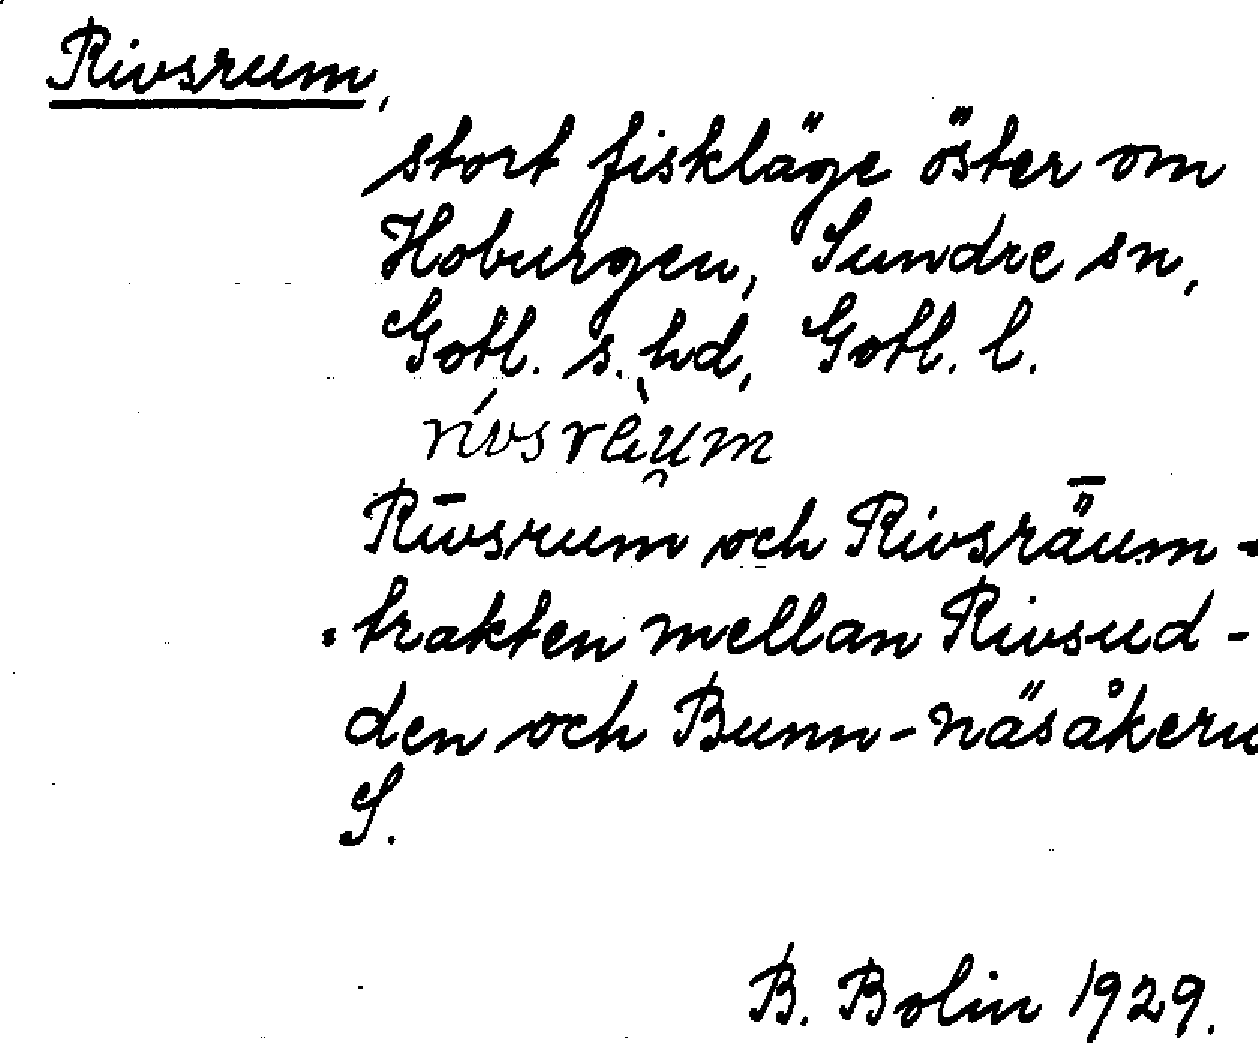 Rivsrum,
stort fiskläge öster om
Hoburgen, Sundre sn,
Gotl. s. hd, Gotl. l.
Rīvsrum och Rivsrǟum-
trakten mellan Rivsud-
den och Bunn-näsåkern
S.
B. Bolin 1929.